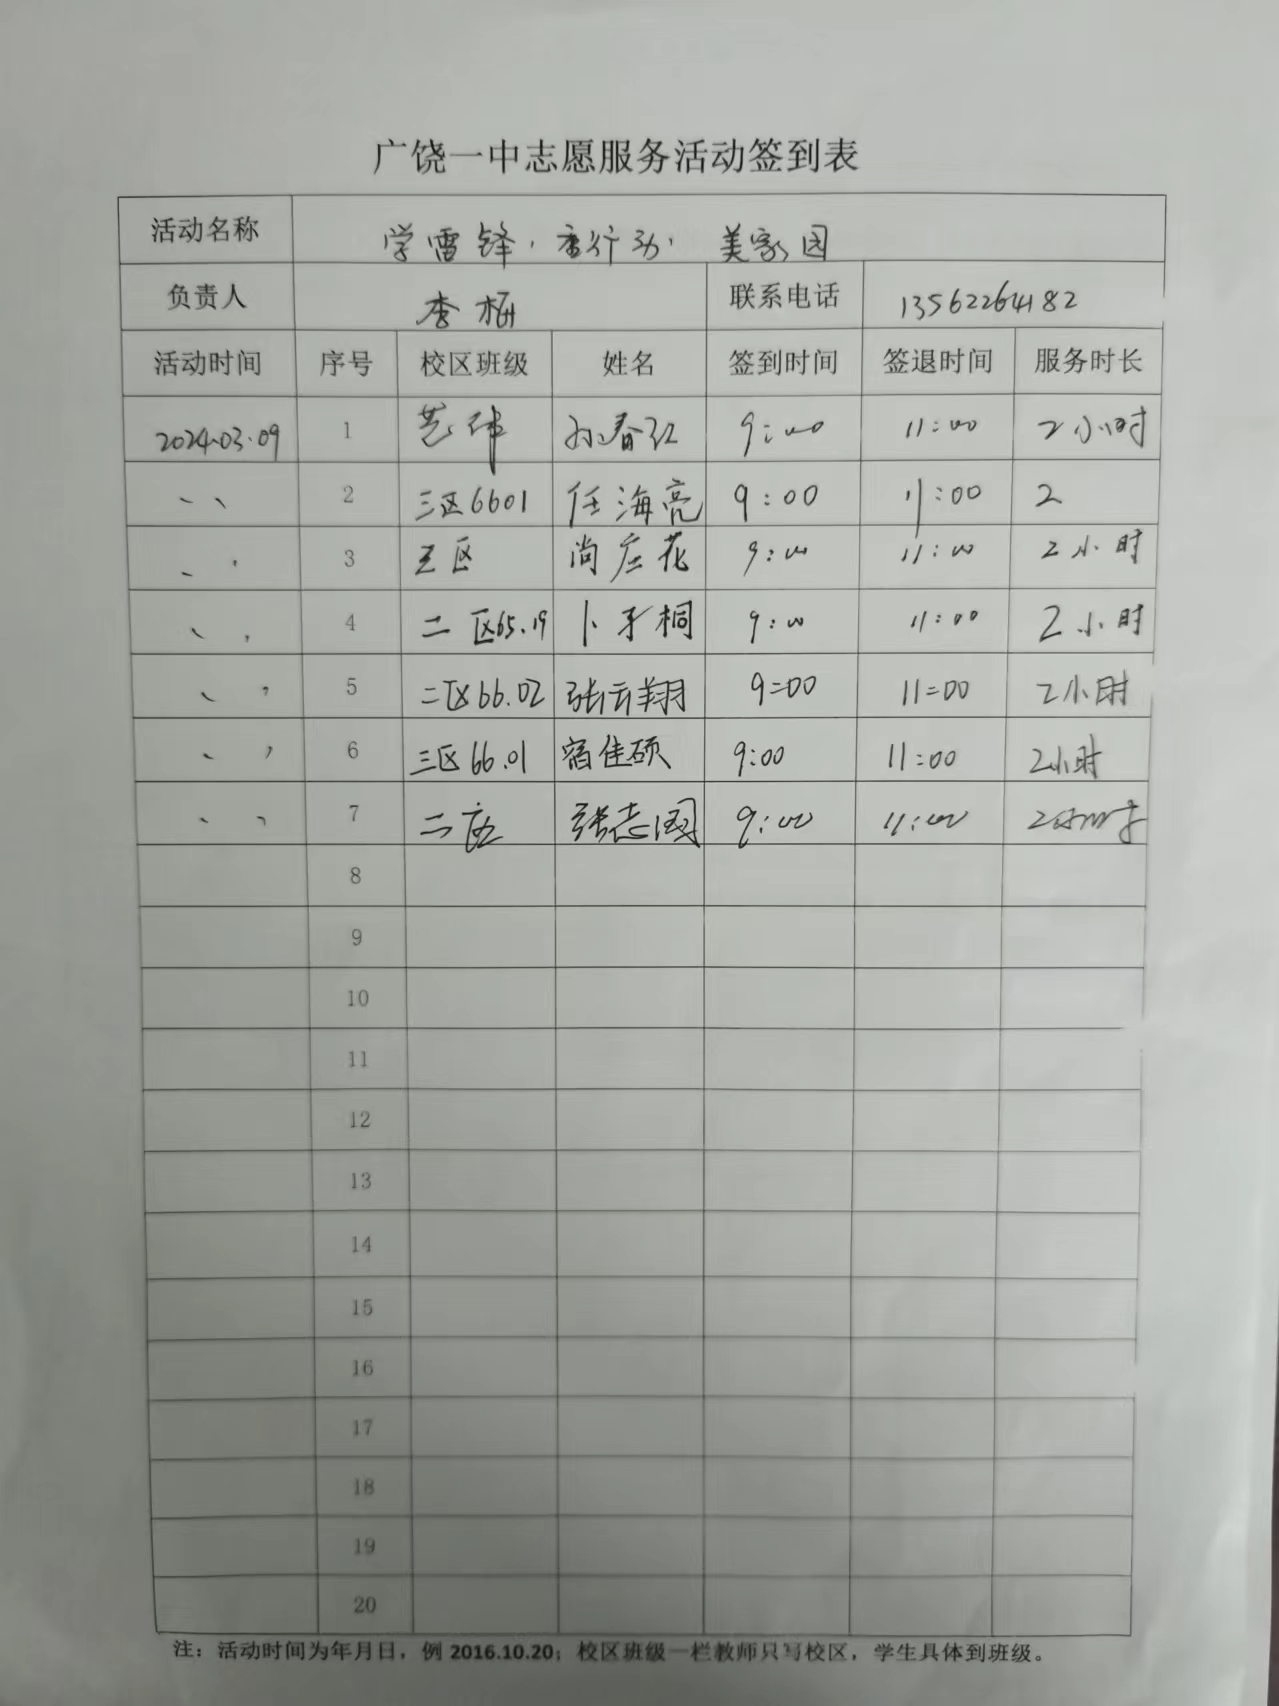 广饶一中志愿服务活动签到表
活动名称 学雷锋·香行动· 美家园
负责人 李梅 联系电话 13562264182
活动时间 序号 校区班级 姓名 签到时间 签退时间 服务时长
2024.03.09 1 艺体 孙春红 9:00 11:00 2小时
、、 2 三区6601 任海亮 9:00 11:00 2
、、 3 三区 尚庄花 9:00 11:00 2小时
、、 4 二区65.19 卜子桐 9:00 11:00 2小时
、、 5 二区66.02 张云翔 9:00 11:00 2小时
、、 6 三区66.01 宿佳硕 9:00 11:00 2小时
、、 7 二区 张志国 9:00 11:00 2小时
8
9
10
11
12
13
14
15
16
17
18
19
20
注：活动时间为年月日，例 2016.10.20；校区班级一栏教师只写校区，学生具体到班级。